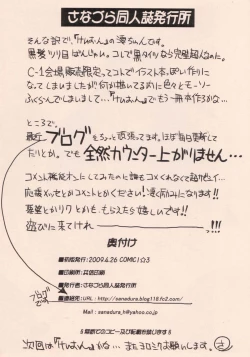 さなづら同人誌発行所
そんな訳で、「けいおん」の澪ちゃんです。
黒髪ツリ目ばんじゃい。コレで黒タイツなら完璧超人なのに。
C-1会場販売限定ってコトでイラスト本っぽい作りに
なってしまいましたが、何か描いてる内に色々とモーソー
ふくらんでしまいまして…「けいおん」でもう一冊本作ろうかな…
ところで、
最近ブログをちょっと頑張ってます。ほぼ毎日更新して
たりとか。でも全然カウンター上がりません…
コメント機能オンにしてみたのに誰もコメくれなくて超クやしイ…
応援メッセとかコメントとかください!
要望とかリクとかも、もらえたら嬉しいです!!
遊びに来てけれーーー!!!
奥付け
■初版発行:2009.4.26 COMIC1☆3
■印刷所:共信印刷
■発行所:さなづら同人誌発行所
ブログです
■連絡先:URL:http://sanadura.blog118.fc2.com/
Mail:sanadura_h@yahoo.co.jp
!!無断でのコピー及び転載を禁じます!!
次回は「けいおん」かな…またヨロシクお願いします。さ